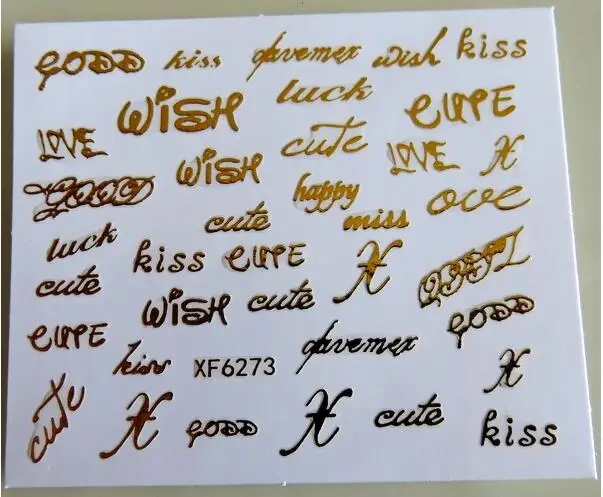 GODD kiss davemex wish kiss
WISH luck CUTE
LOVE WISH cute LOVE X
GOOD happy ove
cute miss
luck kiss CUTE X
cute WISH cute GODD
CUTE kiss XF6273 davemex X
cute X GODD X cute kiss